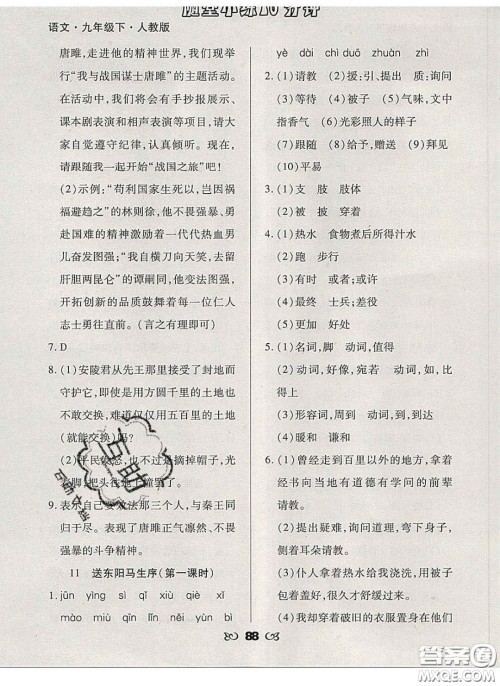 随堂小练10分钟
语文·九年级下·人教版
唐雎,走进他的精神世界,我们举行
“我与战国谋士唐雎”的主题活动。
在活动中,我们将会有手抄报展示、
课本剧表演和相声表演等项目,请大
家自觉遵守纪律,认真倾听。现在,
请跟随我一起开始“战国之旅”吧!
(2)示例:“苟利国家生死以,岂因祸
福避趋之”的林则徐,他的舍生取义、勇
赴国难的精神激励着一代代热血男
儿奋发图强;“我自横刀向天笑,去留
肝胆两昆仑”的谭嗣同,他变法图强,
开拓创新的品质鼓舞着每一位仁人
志士勇往直前。(言之有理即可)
7. D
8. (1)安陵君从先王那里接受了封地而
守护它,即使是用方圆千里的土地也
不敢交换,难道仅仅用五百里的土地
(就能交换)吗?
(2)平民发怒,也不过是摘掉帽子,光
着脚,把头往地上撞罢了。
9. 表示自己要效法那三个人,与秦王同
归于尽。表现了唐雎正气凛然、不畏
强暴的斗争精神。
11 送东阳马生序(第一课时)
1. jūn yíng sì qǐ xiù xián qiè
mào miù qìn lǐn něi yùn bì
yè dài chì duō zhuàn zhì
2. (1)请教 (2)援:引、提出 质:询问
(3)等待 (4)被子 (5)气味,文中
指香气 (6)光彩照人的样子
(7)跟随 (8)给予,赠送 (9)拜见
(10)平易
3. (1)支 肢 肢体
(2)被 披 穿着
4. (1)热水 食物煮后所得汁水
(2)跑 步行
(3)有时 或者;或许
(4)最终 士兵;差役
(5)更加 好处
5. (1)名词,脚 动词,值得
(2)动词,好像,宛若 动词,如,比
得上
(3)形容词,周到 动词,到,到达
(4)暖和 谦和
6. (1)曾经走到百里以外的地方,拿着
经书向当地有道德有学问的前辈
请教。
(2)提出疑难,询问道理,弯下身子,
侧着耳朵请教。
(3)仆人拿着热水给我浇洗,用被子
包着盖好,很久才舒缓过来。
(4)我却穿着破旧的衣服置身在他们
88
互助
答案圈
MXQE.COM